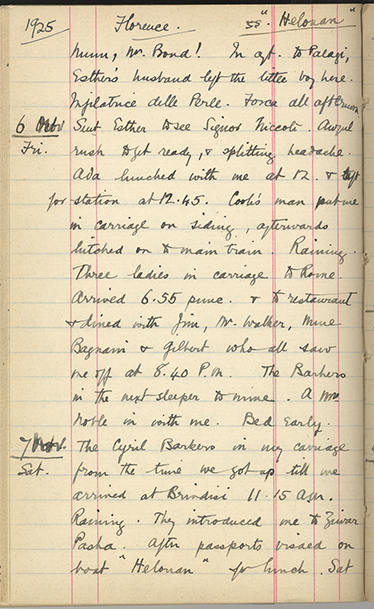 1925 Florence. SS "Helouan"
Mum, Mr. Bond! In aft. to Palazi,
Esther's husband left the little boy here.
Infilatrice delle Perle. Tosca all afternoon
6 Nov Sent Esther to see Signor Niccoli. Awful
Fri. rush to get ready, & splitting headache.
Ada lunched with me at 12. & left
for station at 12.45. Cook's man put me
in carriage on siding, afterwards
hitched on to main train. Raining.
Three ladies in carriage to Rome.
Arrived 6.55 punc. & to restaurant
& dined with Jim, Mr. Walker, Mme
Bagnani & Gilbert who all saw
me off at 8.40 P.M. The Barkers
in the next sleeper to mine. A Mrs
Noble in with me. Bed early.
7 Nov. The Cyril Barkers in my carriage
Sat. from the time we got up till we
arrived at Brindisi 11.15 A.M.
Raining. They introduced me to Ziwar
Pasha. After passports visaed on
boat "Helouan" for lunch. Sat